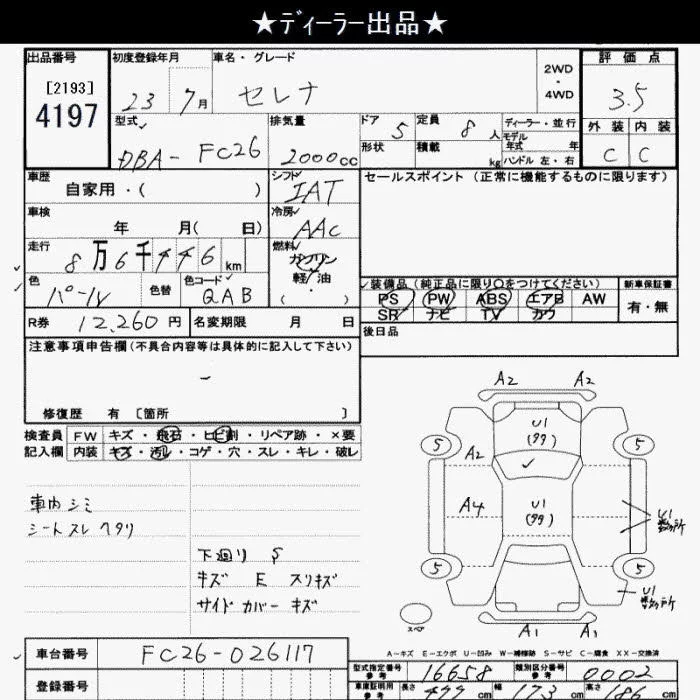 ★ディーラー出品★
出品番号 初度登録年月 車名・グレード 2WD・4WD 評価点
[2193]
4197
23 7月 セレナ 3.5
型式 排気量 ドア 定員 ディーラー・並行 外装 内装
DBA-FC26 2000cc 5 8人 モデル年式 年 C C
形状 積載 kg ハンドル 左・右
車歴 シフト セールスポイント(正常に機能するものに限ります)
自家用・( ) IAT
車検 冷房
年 月( 日) AAC
走行 燃料
8万6千446km ガソリン
色 色替 色コード 軽/油
パール QAB ( ・ )
装備品(純正品に限り○をつけてください) 新車保証書
PS PW ABS エアB AW 有・無
SR ナビ TV カワ
R券 12,260円 名変期限 月 日 後日品
注意事項申告欄(不具合内容等は具体的に記入して下さい)
-
修復歴 有 [箇所 ]
検査員 FW キズ・飛石・ヒビ割・リペア跡・×要
記入欄 内装 キズ・汚れ・コゲ・穴・スレ・キレ・破レ
車内シミ
シートスレ ヘタリ
下廻り S
キズ E スリキズ
サイドカバー キズ
A2 A2
U1
(99)
5 5
A2
A4
U1
(99)
U1
5 5
U1
スペア
A1 A1
A-キズ E-エクボ U-凹み W-補修跡 S-サビ C-腐食 XX-交換済
車台番号 FC26-026117
型式指定番号 参考 16658 類別区分番号 参考 0002
登録番号
車庫証明用 参考 長さ 477cm 幅 173cm 高さ 186cm